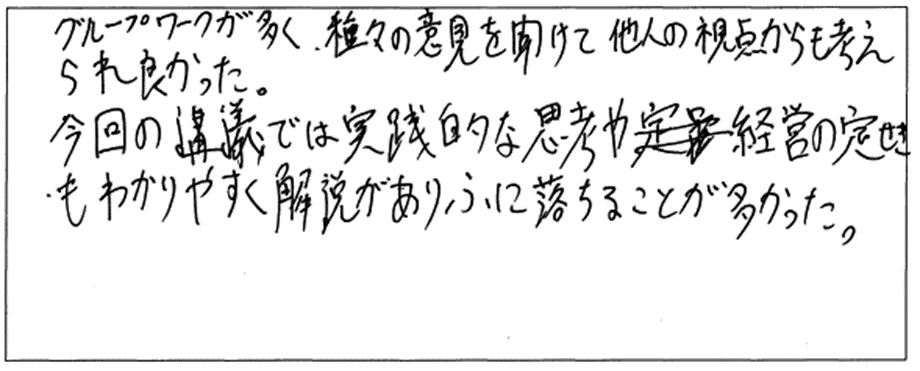 グループワークが多く、種々の意見を聞けて他人の視点からも考え
られ良かった。
今回の講義では実践的な思考や経営の定せき
もわかりやすく解説がありふに落ちることが多かった。